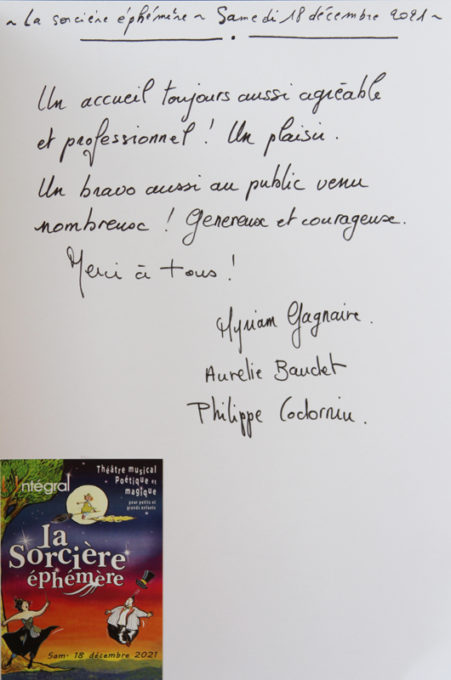 ~ La sorcière éphémère ~ Samedi 18 décembre 2021 ~
Un accueil toujours aussi agréable
et professionnel ! Un plaisir.
Un bravo aussi au public venu
nombreux ! Genereux et courageux.
Merci à tous !
Myriam Gagnaire.
Aurelie Baudet
Philippe Codorniu.
intégral
Théâtre musical
Poétique et
magique
pour petits et
grands enfants
la
Sorcière
éphémère
Sam. 18 décembre 2021